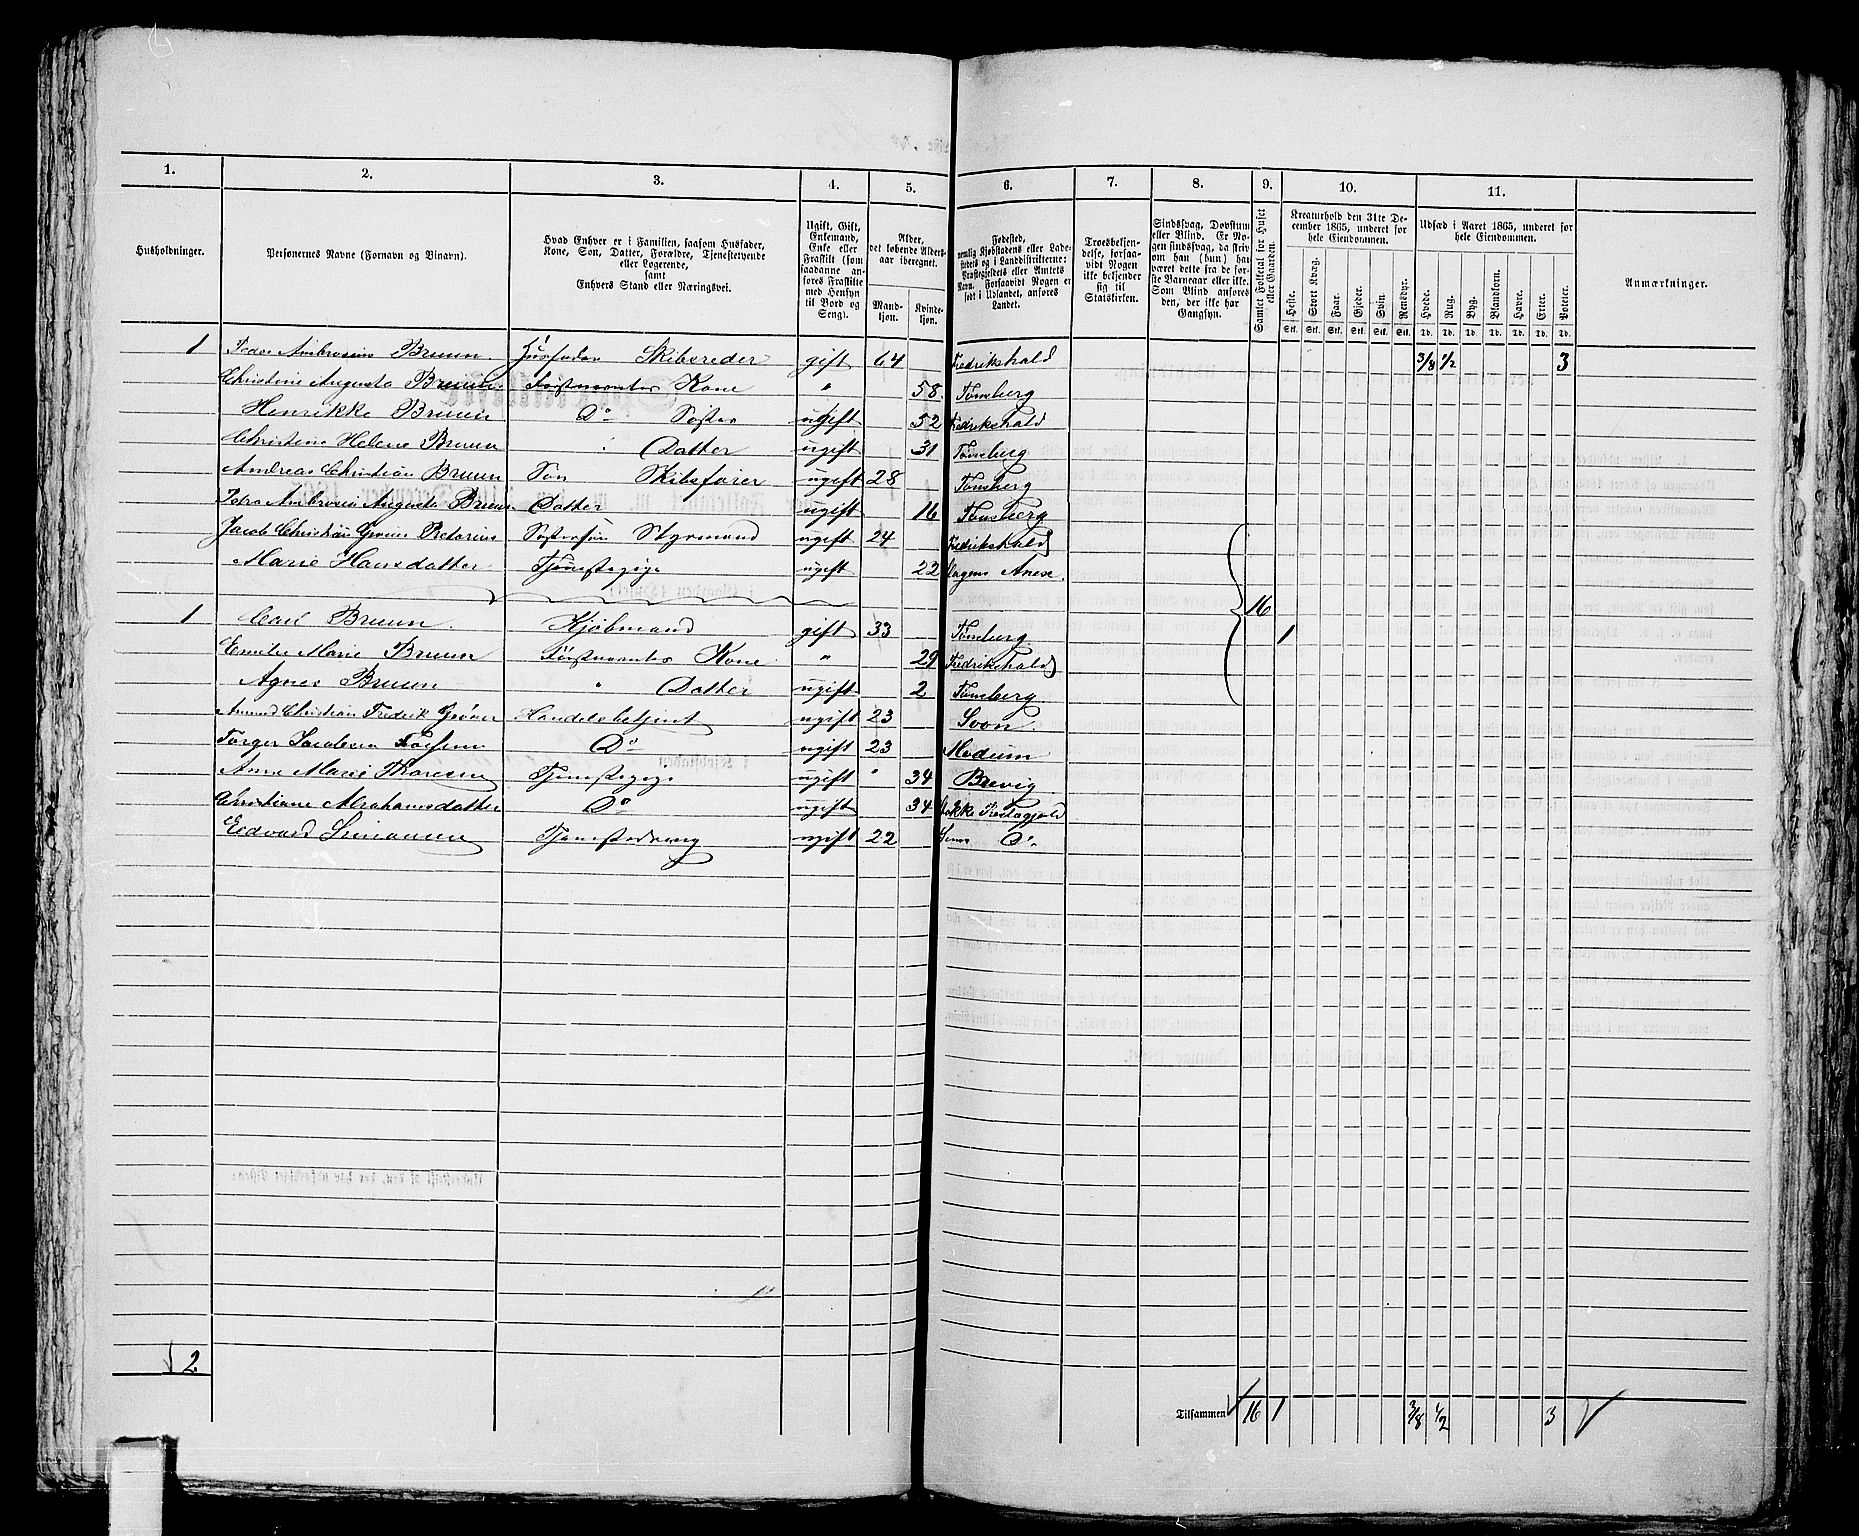 1. 2. 3. 4. 5. 6. 7. 8. 9. 10. 11.
Husholdninger.
Personernes Navne (Fornavn og Binavn).
Hvad Enhver er i Familien, saasom Husfader, Kone, Søn, Datter, Forældre, Tjenestetyende eller Logerende, samt Enhvers Stand eller Næringsvei.
Ugift, Gift, Enkemand, Enke eller Fraskilt (som saadanne anføres Fraskilte med Hensyn til Bord og Seng).
Alder, det løbende Alders-aar iberegnet.
Mand-kjøn. Kvinde-kjøn.
Fødested, nemlig Kjøbstadens eller Ladestedets og i Landdistrikterne: Præstegjeldets eller Amtets Navn. Forsaavidt Nogen er født i Udlandet, anføres Landet.
Troesbekjendelse, forsaavidt Nogen ikke bekjender sig til Statskirken.
Sindssvag, Døvstum eller Blind. Er Nogen sindssvag, da skrives om han (hun) har været dette fra de første Barneaar eller ikke. Som Blind ansøres den, der ikke har Gangsyn.
Samlet Folketal for Huset eller Gaarden.
Kreaturhold den 31te December 1865, underet for hele Eiendommen.
Heste. Stort Kvæg. Faar. Gjeder. Svin. Rensdyr.
Udsæd i Aaret 1865, underet for hele Eiendommen.
Hvede. Rug. Byg. Blandkorn. Havre. Erter. Poteter.
Anmærkninger.
Stk. Stk. Stk. Stk. Stk. Stk. Td. Td. Td. Td. Td. Td. Td.
1 Peder Ambrosius Bruun Husfader Skibsreder gift 64 Fredrikshald 3/8 1/2 3
Christine Augusta Bruun Førstnævntes Kone " 58 Tønsberg
Henrikke Bruun Do Søster ugift 52 Fredrikshald
Christine Helene Bruun Datter ugift 31 Tønsberg
Andreas Christian Bruun Søn Skibsfører ugift 28 Tønsberg
Petra Ambrosia Augusta Bruun Datter ugift 16 Tønsberg
Jacob Christian Grøn Pretorius Søstersøn Styrmand ugift 24 Fredrikshald
Marie Hansdatter Tjenestepige ugift 22 Slagens Anex
16
1 Carl Bruun Kjøbmand gift 33 Tønsberg 1
Emilie Marie Bruun Førstnævntes Kone " 29 Fredrikshald
Agnes Bruun " Datter ugift 2 Tønsberg
Amund Christian Fredrik Grøner Handelsbetjent ugift 23 Soon
Torger Jacobsen Do ugift 23 Modum
Anne Marie Thoresen Tjenestepige ugift " 34 Brevig
Christiane Abrahamsdatter Do ugift 34 Stokke Præstegjeld
Edvard Simonsen Tjenestedreng ugift 22 Sems Do
2
Tilsammen 16 1 3/8 1/2 3